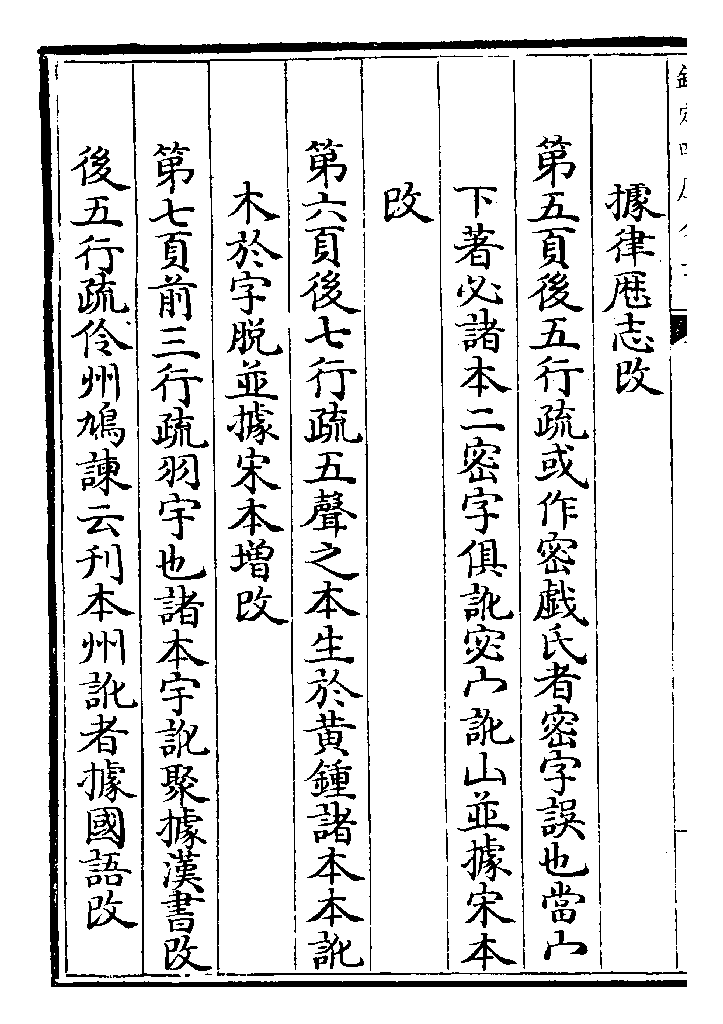 據律厯志改
第五頁後五行疏或作密戲氏者密字誤也當宀
下著必諸本二密字俱訛宓宀訛山並據宋本
改
第六頁後七行疏五聲之本生於黄鍾諸本本訛
木於字脱並據宋本增改
第七頁前三行疏羽宇也諸本宇訛聚據漢書改
後五行疏伶州鳩諫云刋本州訛者據國語改